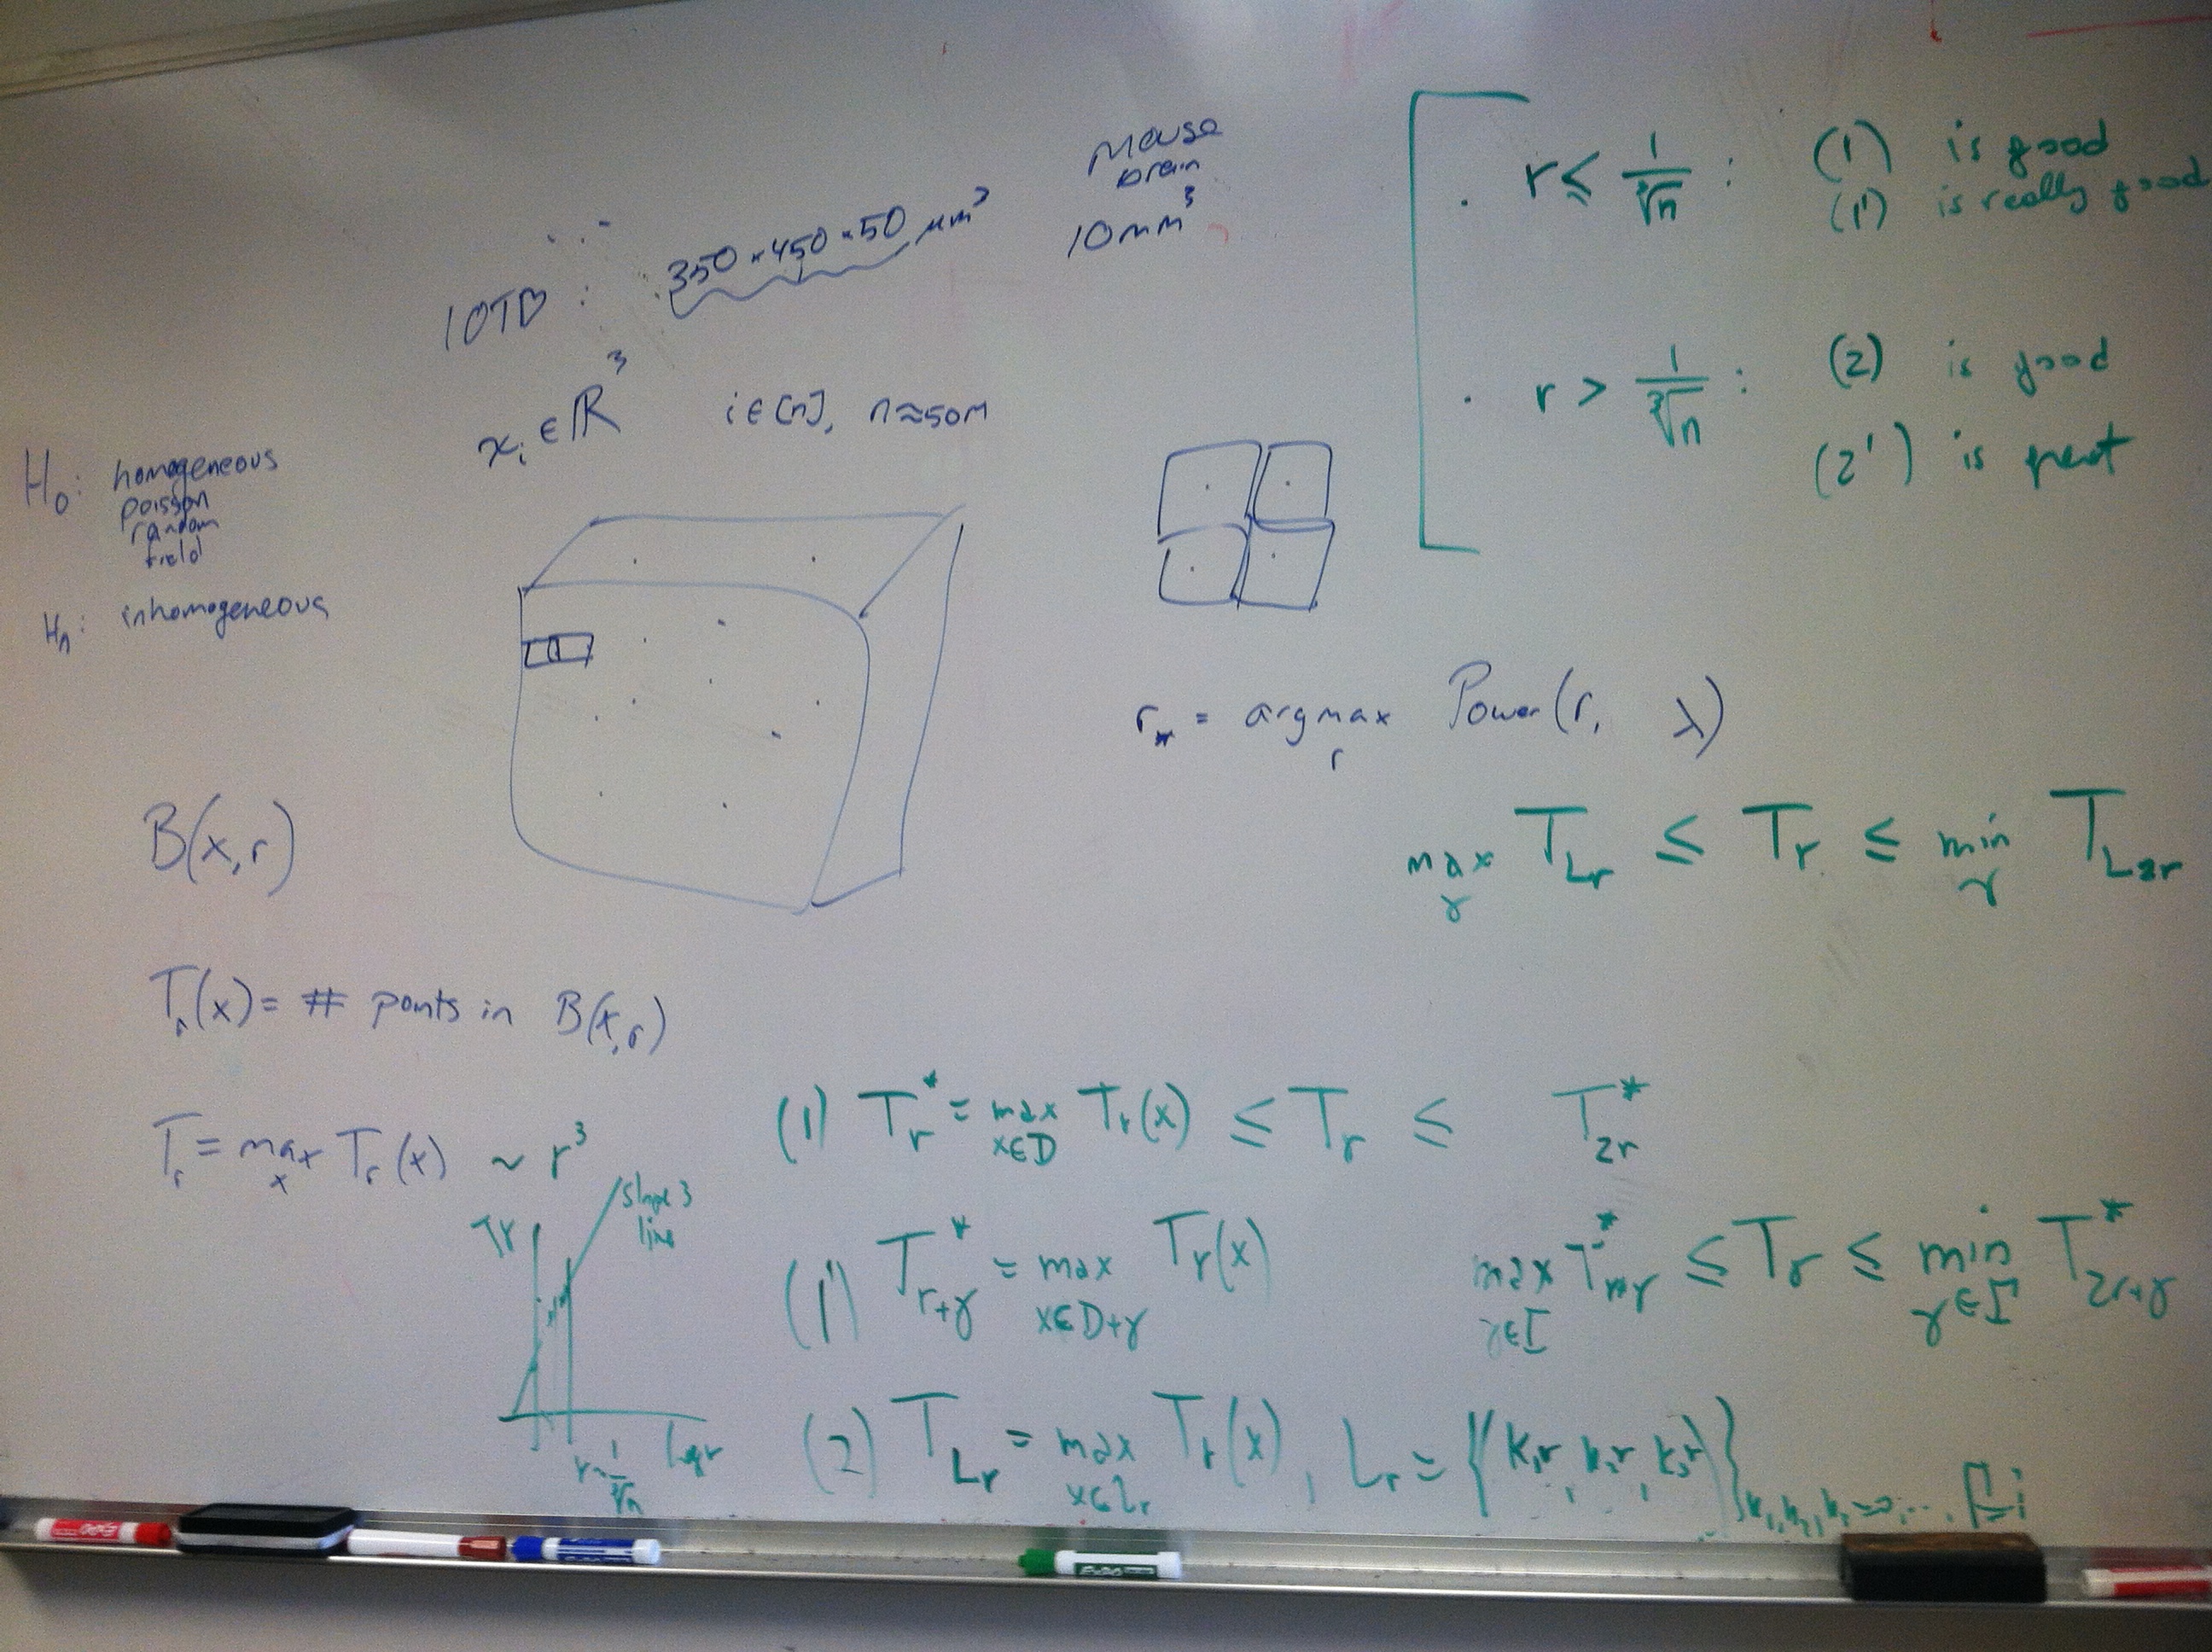 mouse
brain
10mm³
10TB : 350 × 450 × 50 μm³
xᵢ ∈ ℝ³ i∈[n], n≈50M
H₀: homogeneous
poisson
random
field
Hₙ: inhomogeneous
B(x,r)
Tᵣ(x) = # points in B(x,r)
Tᵣ = max Tᵣ(x) ~ r³
x
Tr
slope 3
line
log r
r~ 1/∛n
· r ≤ 1/∛n : (1) is good
(1') is really good
· r > 1/∛n : (2) is good
(2') is great
r* = argmax Power(r, λ)
r
max T_Lr ≤ Tr ≤ min T_L2r
γ γ
(1) Tr* = max Tr(x) ≤ Tr ≤ T2r*
x∈D
(1') T*r+γ = max Tr(x) max T*r+γ ≤ Tr ≤ min T*2r+γ
x∈D+γ γ∈Γ γ∈Γ
(2) T_Lr = max Tr(x), Lr = {(k₁r, k₂r, k₃r)} k₁,k₂,k₃=0,...,
x∈Lr
EXPO